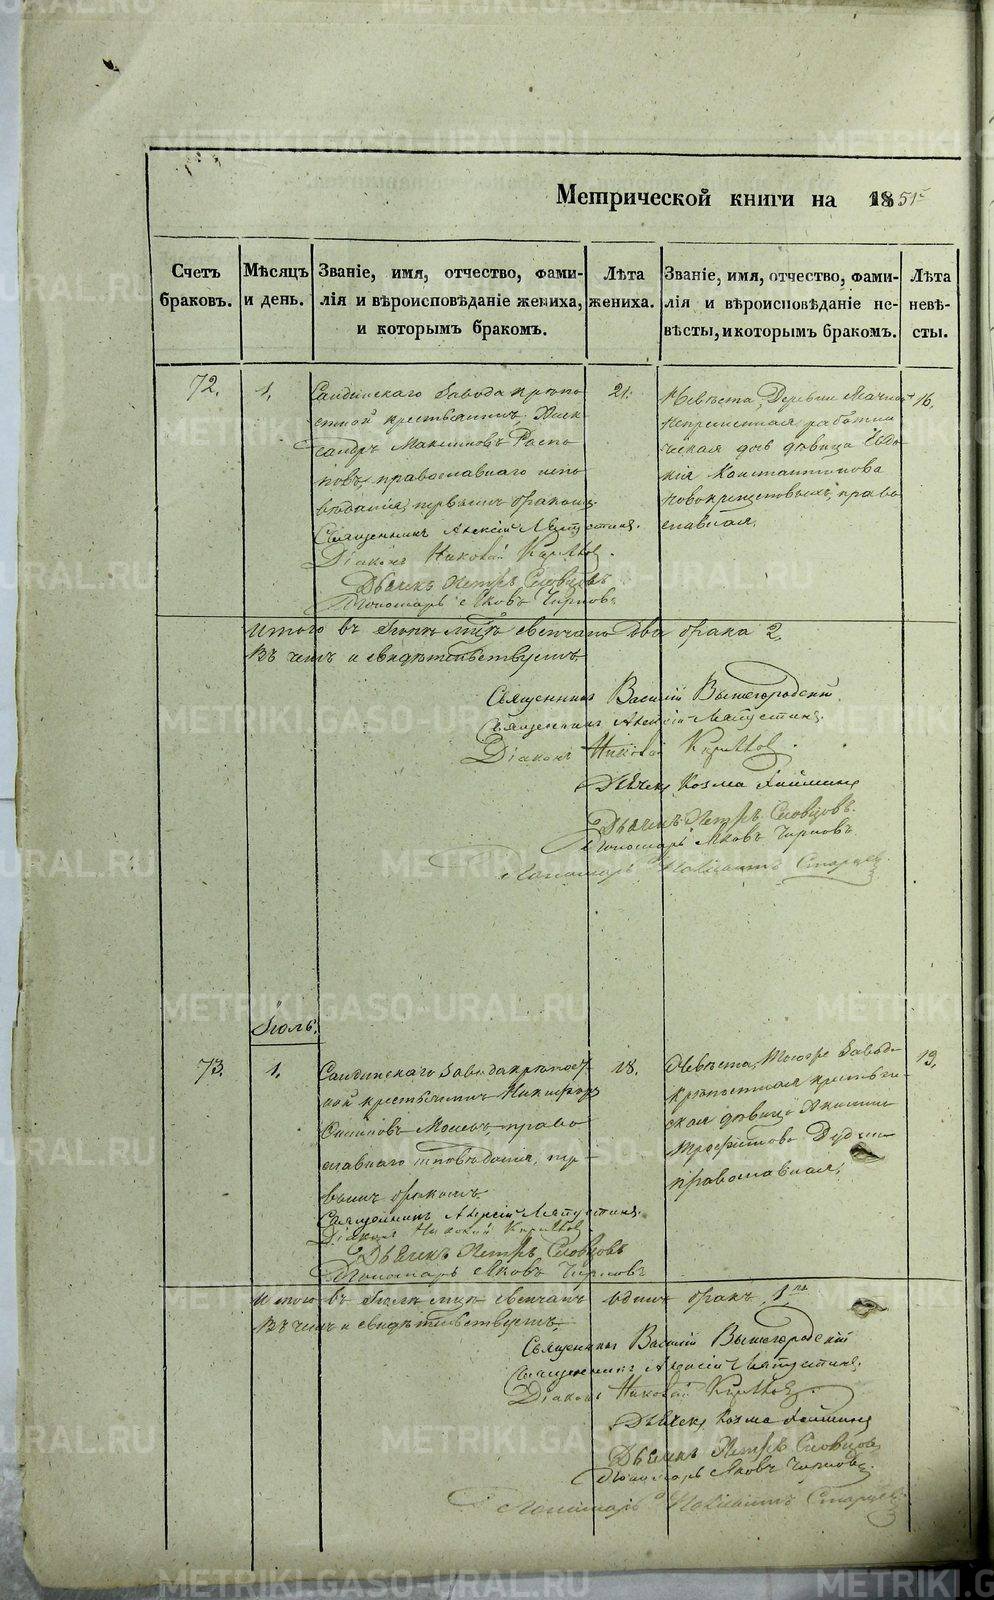 Метрической книги на 1851 г.
Счетъ браковъ.
Мѣсяцъ и день.
Званіе, имя, отчество, фами-
лія и вѣроисповѣданіе жениха,
и которымъ бракомъ.
Лѣта жениха.
Званіе, имя, отчество, фами-
лія и вѣроисповѣданіе не-
вѣсты, и которымъ бракомъ.
Лѣта невѣ-
сты.
72.
1.
Завода крѣпо
стной крестьянинъ Алек
сандръ Максимовъ Распо
повъ, православнаго испо
вѣданія, первымъ бракомъ.
Священникъ Алексій Ляпустинъ.
Діаконъ Николай
Дьячекъ Петръ Словцовъ
Пономарь Яковъ Чирковъ
21.
Невѣста, Деревни
непремѣнная работни
ческая дочь дѣвица Евдо
кія Константинова
Новокрещеновыхъ, право
славная,
16.
Итого въ Іюнѣ мцѣ свѣнчано два брака 2.
Въ чемъ и свидѣтельствуемъ
Священникъ Василій Вышегородскій
Священникъ Алексій Ляпустинъ.
Діаконъ Николай
Дьячекъ Козма
Дьячекъ Петръ Словцовъ.
Пономарь Яковъ Чирковъ
Пономарь Старцев
Іюль.
73.
1.
Завода крѣпост
ной крестьянинъ Никифоръ
право
славнаго исповѣданія, пер-
вымъ бракомъ.
Священникъ Алексій Ляпустинъ.
Діаконъ Николай
Дьячекъ Петръ Словцовъ
Пономарь Яковъ Чирковъ
18.
Невѣста, Завода
крѣпостная крестьян-
ская дѣвица
Трофимова
православная,
19.
Итого въ Іюлѣ мцѣ свѣнчанъ одинъ бракъ 1.
Въ чемъ и свидѣтельствуемъ
Священникъ Василій Вышегородскій
Священникъ Алексій Ляпустинъ.
Діаконъ Николай
Дьячекъ Козма
Дьячекъ Петръ Словцовъ
Пономарь Яковъ Чирковъ
Пономарь Старцев
METRIKI.GASO-URAL.RU